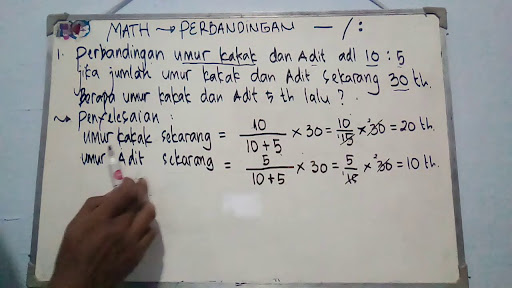 MATH → PERBANDINGAN — /:
1. Perbandingan umur kakak dan Adit adl 10 : 5
jika jumlah umur kakak dan Adit sekarang 30 th.
Berapa umur kakak dan Adit 5 th lalu ?
~> Penyelesaian :
umur kakak sekarang = 10/(10+5) × 30 = 10/15 × 30 = 20 th.
umur Adit sekarang = 5/(10+5) × 30 = 5/15 × 30 = 10 th.